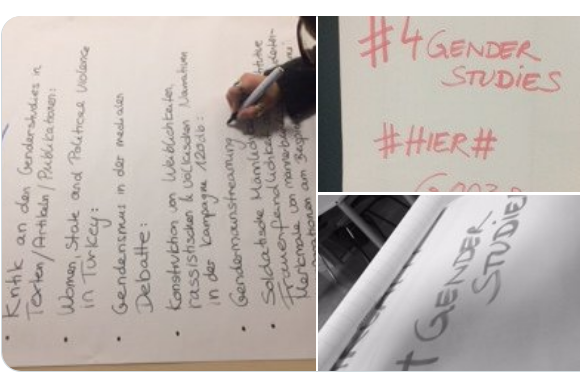 • Kritik an den Genderstudies in
Texten/Artikeln/Publikationen:
• Women, State and Political Violence
in Turkey:
• Genderismus in der medialen
Debatte:
• Konstruktion von Weiblichkeiten
rassistischen & völkischen Narrativen
in der Kampagne 120db:
• Gendermainstreaming
• Soldatische
Frauenfeindlichkei
Merkmale von
am
#4 GENDER
STUDIES
#HIER#
GENDER
STUDIE